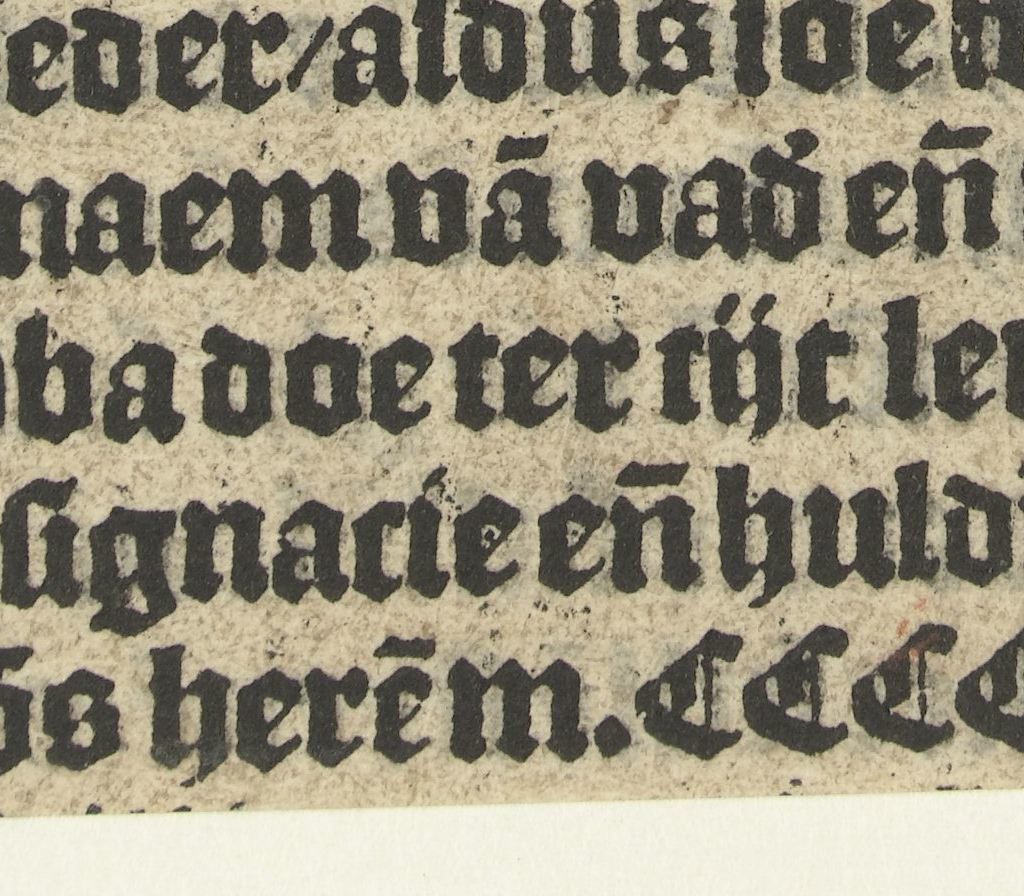 eder/aldus soe d
naem vā vad̕ en̄
ba doe ter tijt le
signacie en̄ huld
s herē m. CCCC